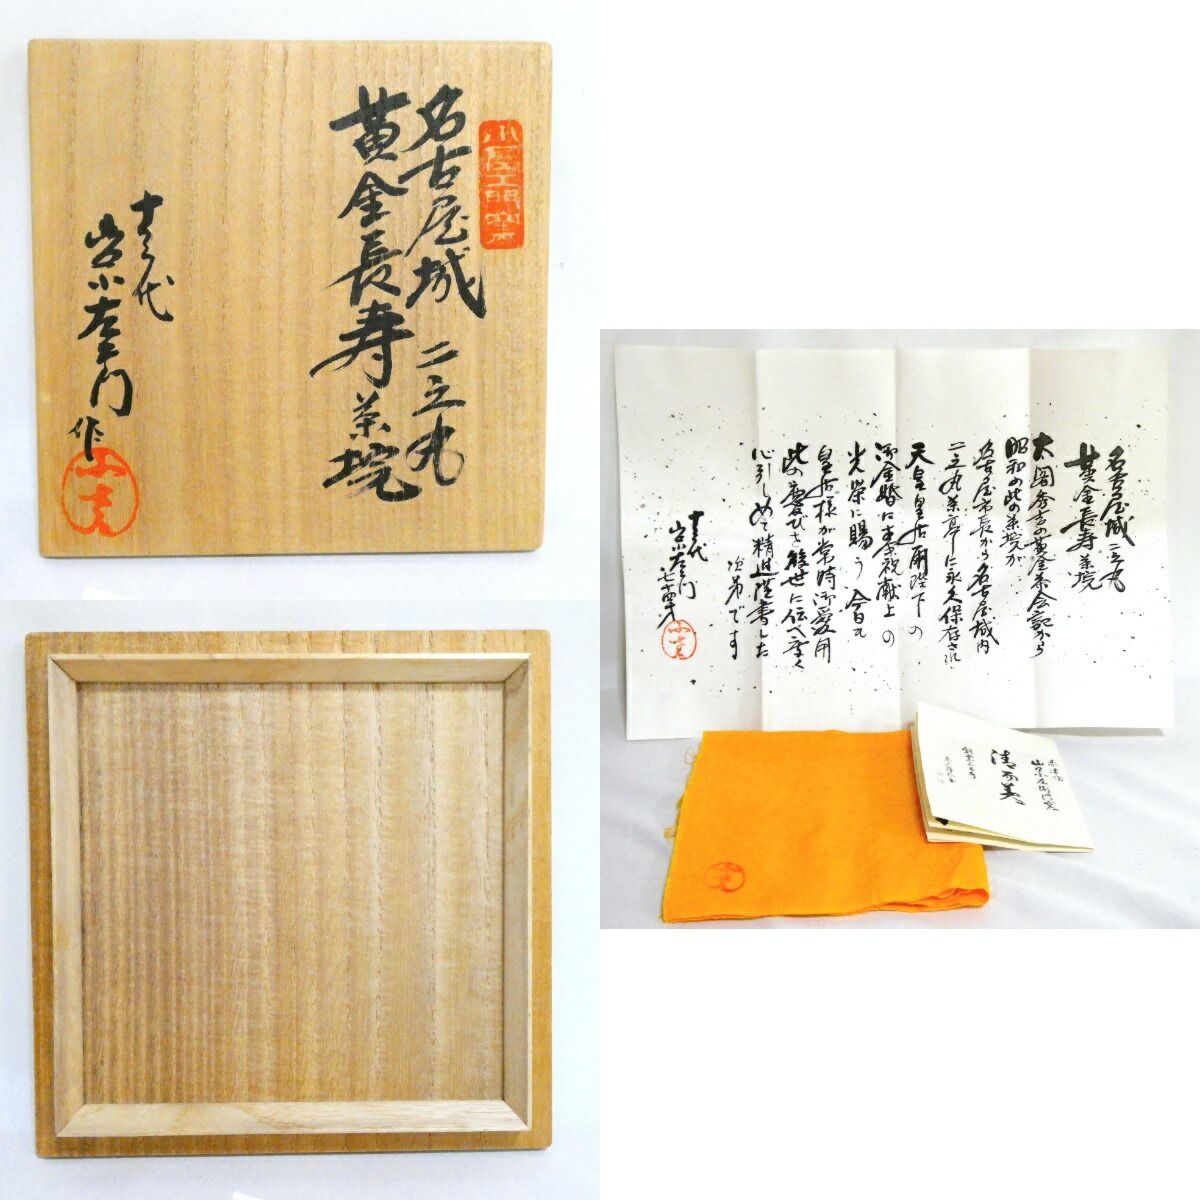 名古屋城 二之丸
黄金長寿茶埦
十三代
小左ヱ門
作
名古屋城二之丸
黄金長寿茶埦
太閤秀吉の黄金茶会記から
昭和の此の茶埦が
名古屋市長から名古屋城内
二之丸茶亭に永久保存され
天皇皇后両陛下の
御金婚に奉祝献上の
光栄に賜う 今日も
皇后様が常時御愛用
此の慶びを後世に伝へ厚く
心引しめて精進謹書した
次第です
十三代
小左ヱ門
清寿美